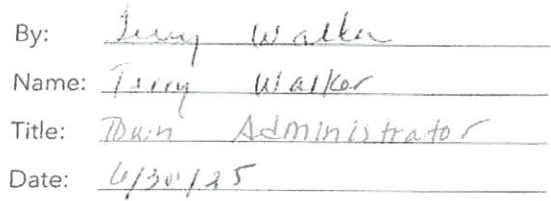 By: Terry Walker
Name: Terry Walker
Title: Town Administrator
Date: 6/30/25